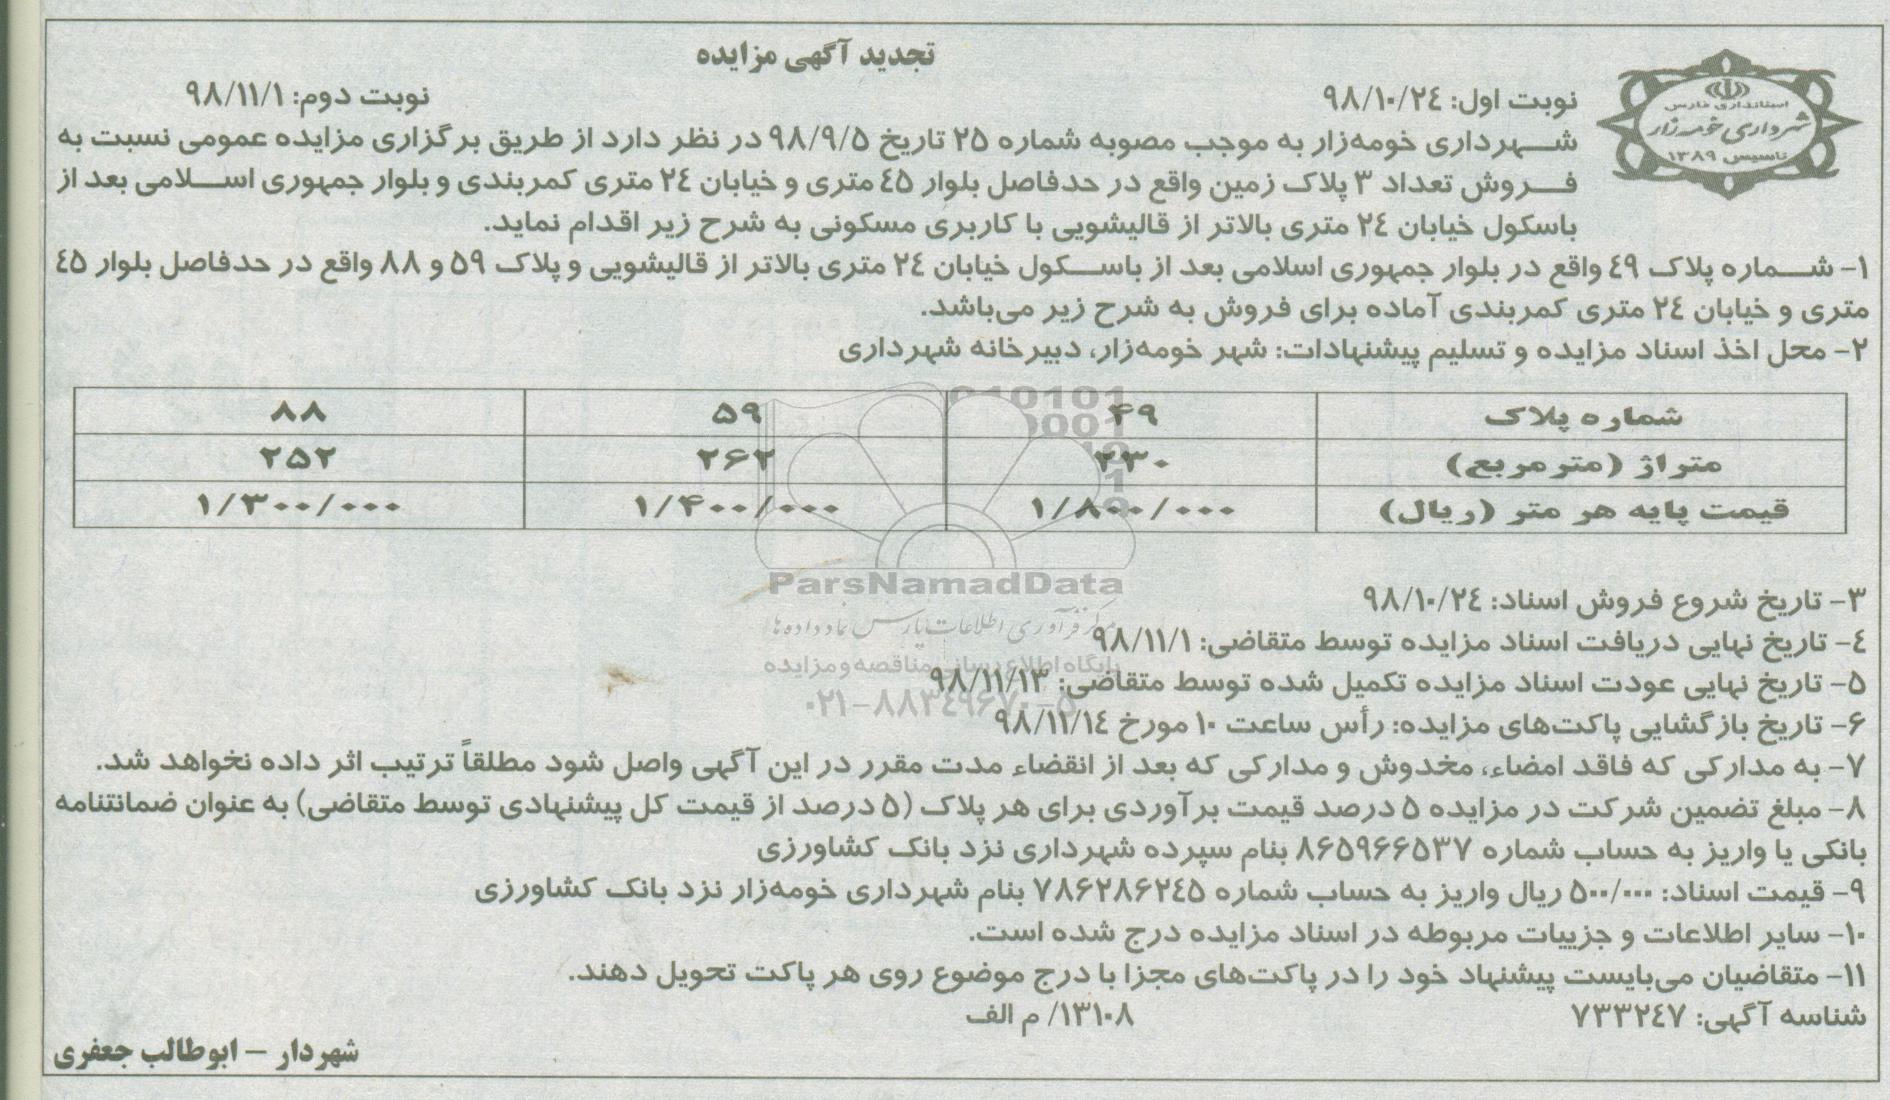 تجدید آگهی مزایده
استانداری فارس
شهرداری خومه‌زار
تاسیس ۱۳۸۹
نوبت اول: ۹۸/۱۰/۲٤ نوبت دوم: ۹۸/۱۱/۱
شهرداری خومه‌زار به موجب مصوبه شماره ۲۵ تاریخ ۹۸/۹/۵ در نظر دارد از طریق برگزاری مزایده عمومی نسبت به
فروش تعداد ۳ پلاک زمین واقع در حدفاصل بلوار ٤۵ متری و خیابان ۲٤ متری کمربندی و بلوار جمهوری اسلامی بعد از
باسکول خیابان ۲٤ متری بالاتر از قالیشویی با کاربری مسکونی به شرح زیر اقدام نماید.
۱- شماره پلاک ٤۹ واقع در بلوار جمهوری اسلامی بعد از باسکول خیابان ۲٤ متری بالاتر از قالیشویی و پلاک ۵۹ و ۸۸ واقع در حدفاصل بلوار ٤۵
متری و خیابان ۲٤ متری کمربندی آماده برای فروش به شرح زیر می‌باشد.
۲- محل اخذ اسناد مزایده و تسلیم پیشنهادات: شهر خومه‌زار، دبیرخانه شهرداری
شماره پلاک ۴۹ ۵۹ ۸۸
متراژ (مترمربع) ۲۳۰ ۲۶۲ ۲۵۲
قیمت پایه هر متر (ریال) ۱/۸۰۰/۰۰۰ ۱/۴۰۰/۰۰۰ ۱/۳۰۰/۰۰۰
ParsNamadData
مرکز فرآوری اطلاعات پارس نماد داده‌ها
پایگاه اطلاع رسانی مناقصه و مزایده
۰۲۱-۸۸۳٤۹۶۷۰-۵
۳- تاریخ شروع فروش اسناد: ۹۸/۱۰/۲٤
٤- تاریخ نهایی دریافت اسناد مزایده توسط متقاضی: ۹۸/۱۱/۱
۵- تاریخ نهایی عودت اسناد مزایده تکمیل شده توسط متقاضی: ۹۸/۱۱/۱۳
۶- تاریخ بازگشایی پاکت‌های مزایده: رأس ساعت ۱۰ مورخ ۹۸/۱۱/۱٤
۷- به مدارکی که فاقد امضاء، مخدوش و مدارکی که بعد از انقضاء مدت مقرر در این آگهی واصل شود مطلقاً ترتیب اثر داده نخواهد شد.
۸- مبلغ تضمین شرکت در مزایده ۵ درصد قیمت برآوردی برای هر پلاک (۵ درصد از قیمت کل پیشنهادی توسط متقاضی) به عنوان ضمانتنامه
بانکی یا واریز به حساب شماره ۸۶۵۹۶۶۵۳۷ بنام سپرده شهرداری نزد بانک کشاورزی
۹- قیمت اسناد: ۵۰۰/۰۰۰ ریال واریز به حساب شماره ۷۸۶۲۸۶۲٤۵ بنام شهرداری خومه‌زار نزد بانک کشاورزی
۱۰- سایر اطلاعات و جزییات مربوطه در اسناد مزایده درج شده است.
۱۱- متقاضیان می‌بایست پیشنهاد خود را در پاکت‌های مجزا با درج موضوع روی هر پاکت تحویل دهند.
شناسه آگهی: ۷۳۳۲٤۷ ۱۳۱۰۸/ م الف
شهردار – ابوطالب جعفری